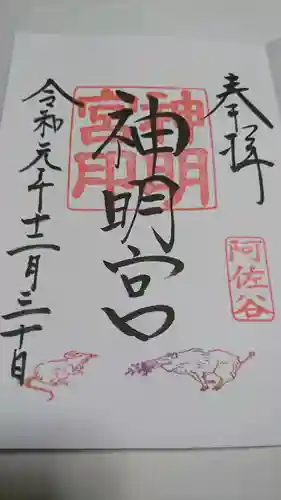 奉拝
阿佐谷
神明宮
神明宮
令和元年十二月三十日